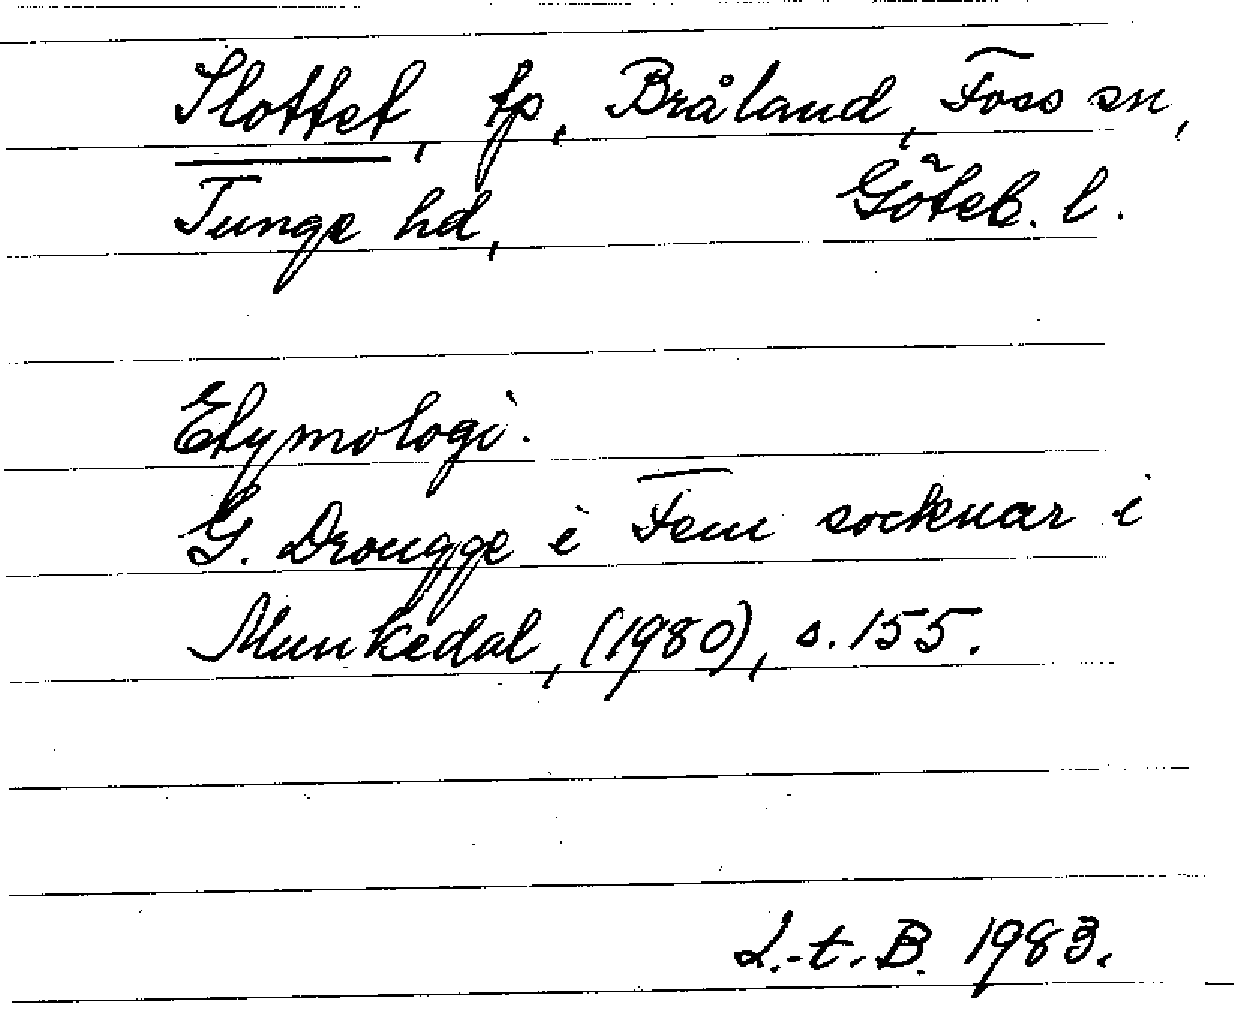 Slottet, tp, Bråland, Foss sn,
Tunge hd, Göteb. l.
Etymologi.
G. Drougge i Fem socknar i
Munkedal, (1980), s. 155.
L.-t. B. 1983.